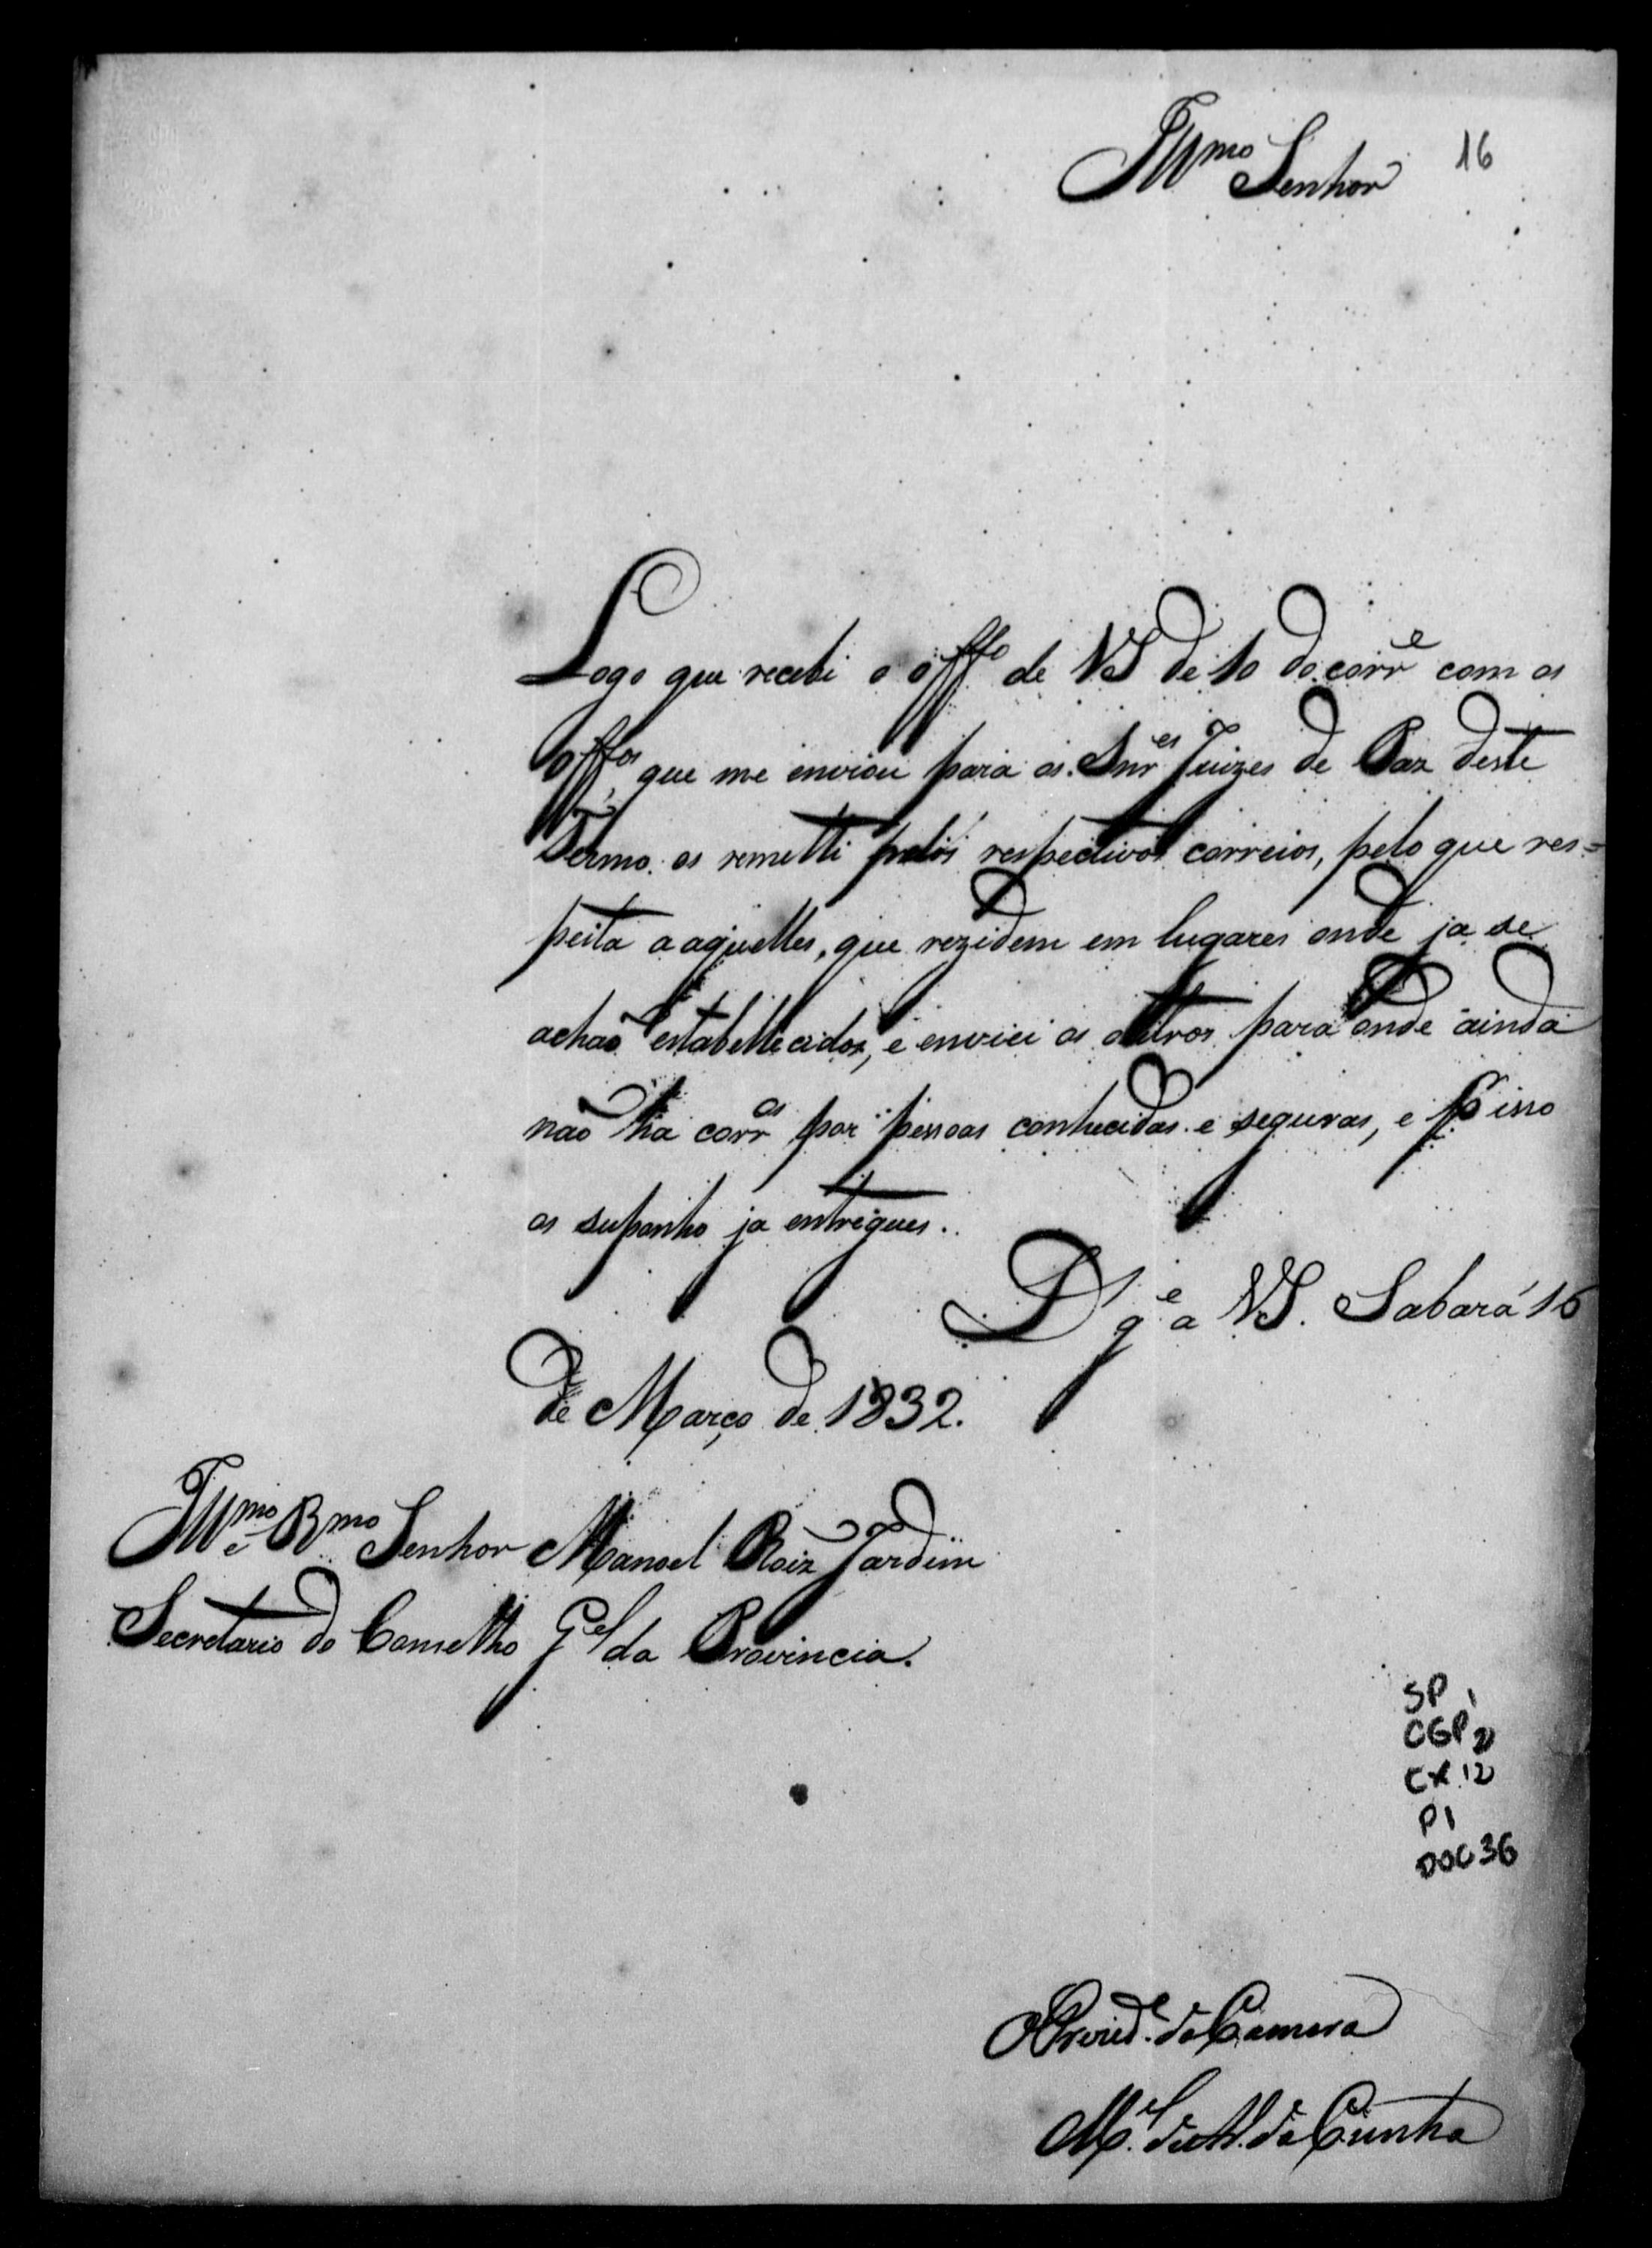 16
Illmo Senhor
Logo que recebi o offo de VS de 10 do corre com os
offos, que me enviou para os Snres Juizes de Paz deste
Termo os remetti pelos respectivos correios, pelo que res=
peita a aquelles, que rezidem em lugares onde ja se
achaõ estabellecidos, e enviei os outros para onde ainda
naõ ha corros por pessoas conhecidas e seguras, e pr isso
os suponho ja entregues.
Ds ge a VS. Sabará 16
de Março de 1832.
Illmo e Rmo Senhor Manoel Roiz Jardim
Secretario do Conselho Gel da Provincia.
SP 1
CGP 2
CX 12
P1
DOC 36
O Prezide. da Camera
Mel. da Cunha